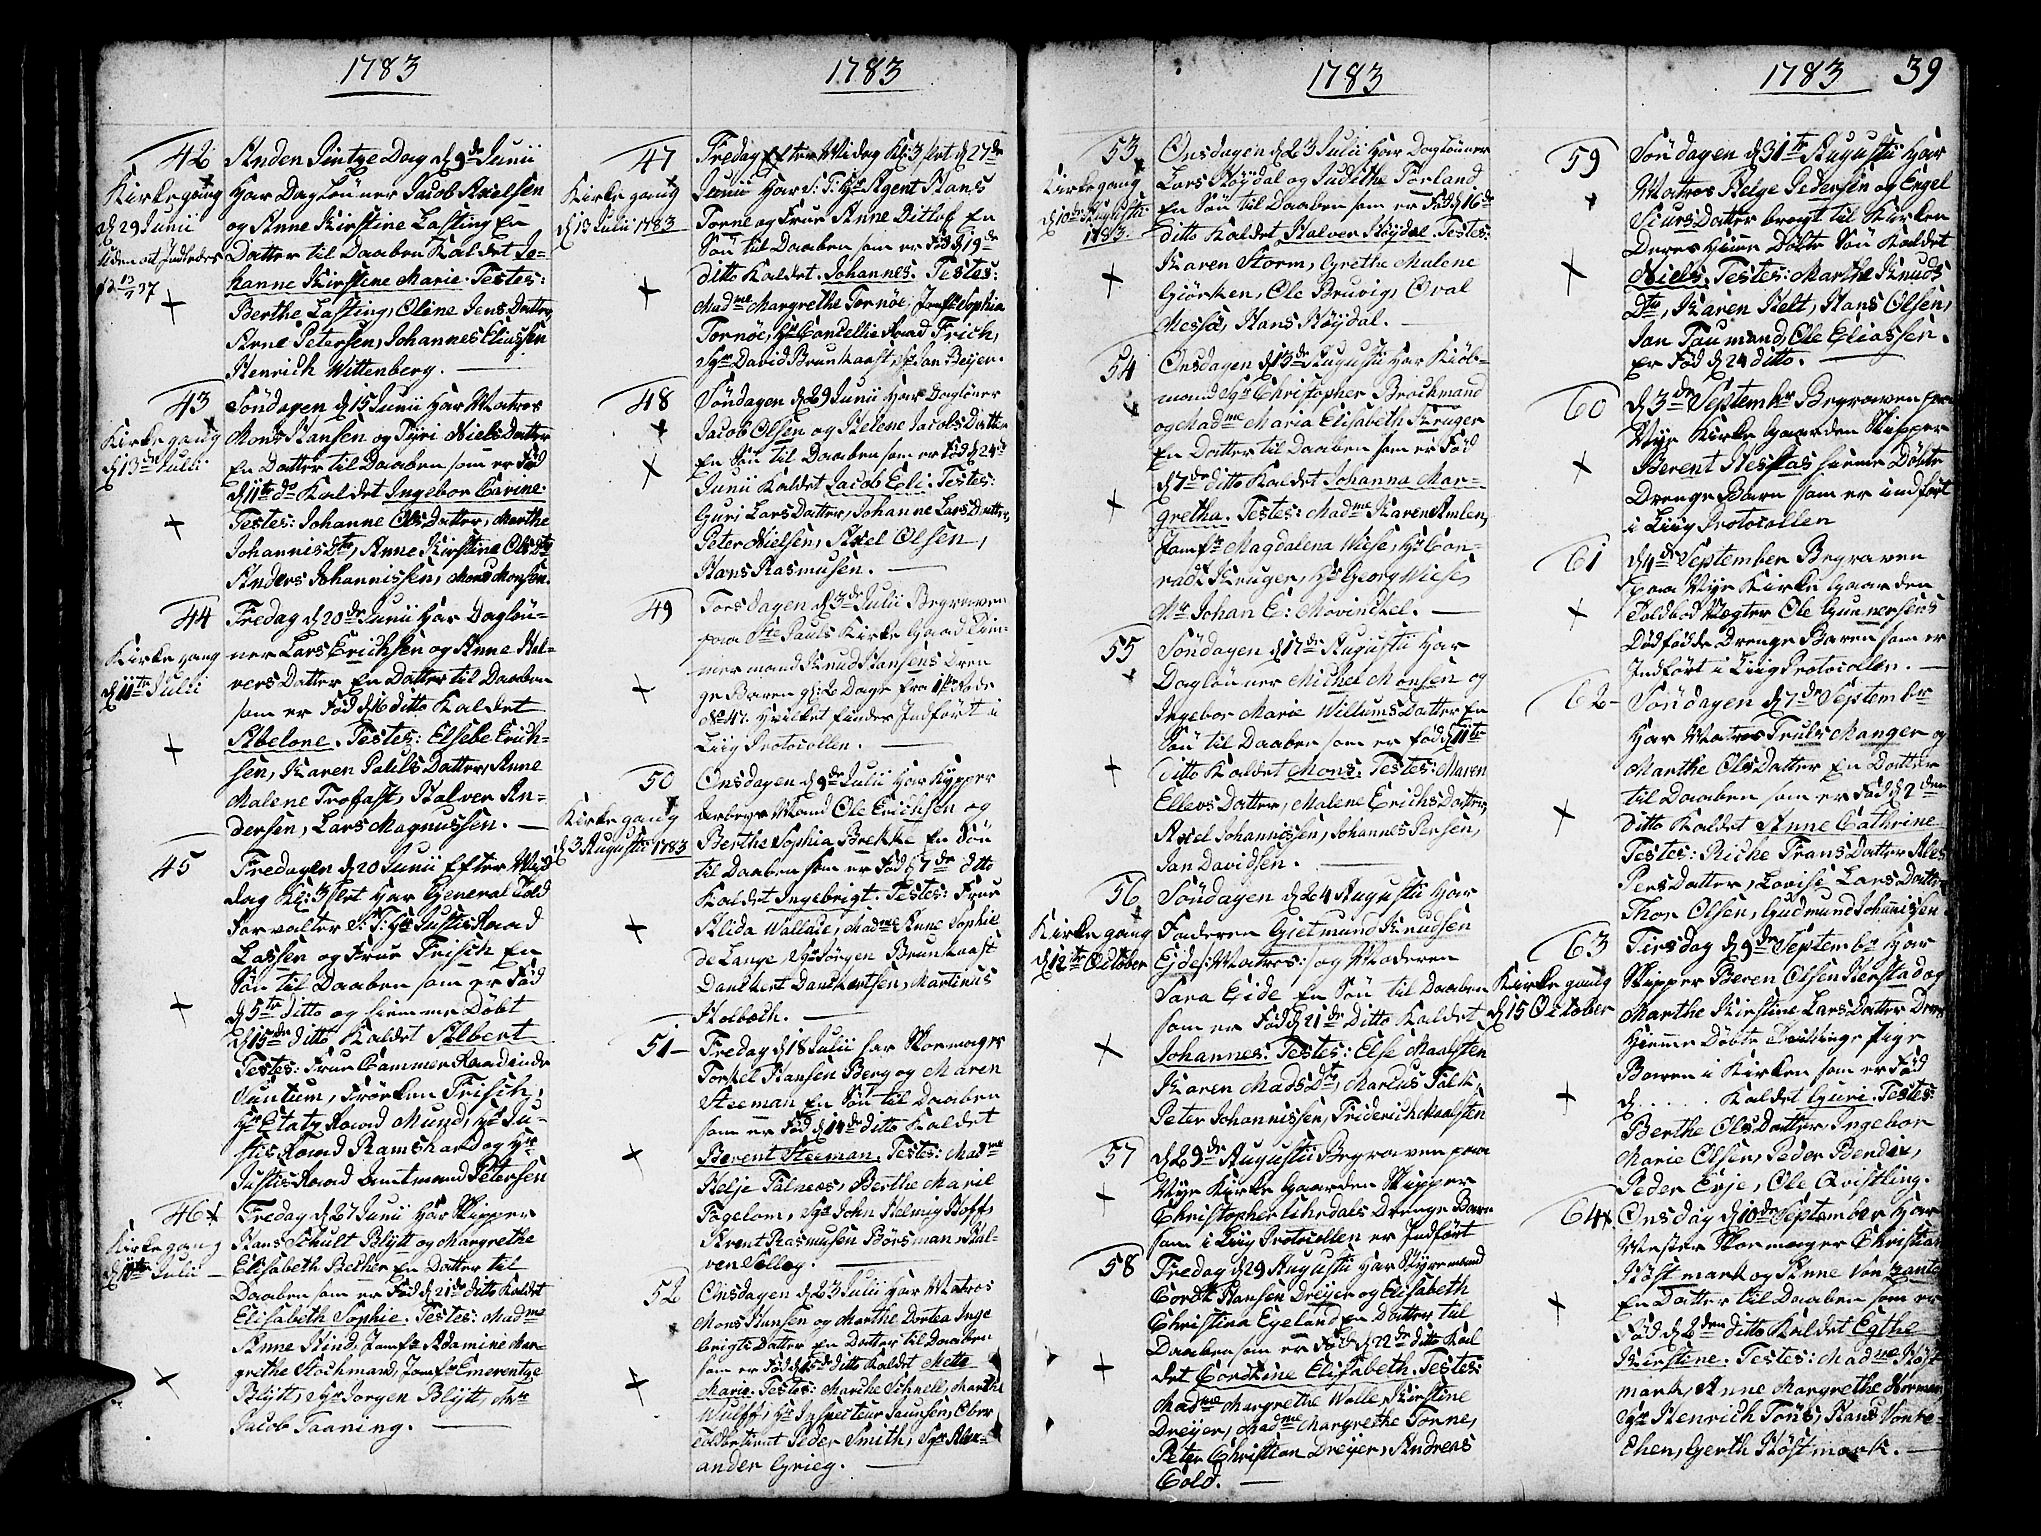 1783
42
Kirkegang
d 29 Junii
Anden Pintze Dag d 9de Junii
Har Dagløuner Jacob Axelsen
og Anne Kirstine Lasting En
Datter til Daaben Kaldet Jo-
hanne Kirstine Marie. Testes:
Berthe Lasting, Oline Jens Datter,
Arne Petersen, Johannes Eliassen
Henrich Wittenberg.
43
Kirkegang
d 13de Julii
Søndagen d 15 Junii Har Matros
Mons Hansen og Tyri Niels Datter
En Datter til Daaben som er Fød
d 11te do Kaldet Ingebor Carine.
Testes: Johanne Ols Datter, Marthe
Johannis Dtr, Anne Kirstine Ols Dtr
Anders Johannissen, Mons Monsen.
44
Kirkegang
d 11te Julii
Fredag d 20de Junii Har Dagløu-
ner Lars Erichsen og Anne Hal-
vers Datter En Datter til Daaben
som er Fød d 16 ditto Kaldet
Abelone. Testes: Elsebe Erich-
sen, Karen Pauls Datter, Anne
Malene Trofast, Halver An-
dersen, Lars Magnussen.
45
Fredagen d 20 Junii Efter Mid
dag Kl: 3 slet Har General Told
Forvalter S: T: Hr Justis Raad
Lassen og Frue Frisch En
Søn til Daaben som er Fød
d 5te ditto og hiemme Døbt
d 15de ditto Kaldet Albert
Testes: Frue Cammer Raadinde
Frøiken Frisch,
Hr Etatz Raad Mund, Hr Ju-
stis Raad Ramshard og Hr
Justis Raad Amtmand Petersen
46
Kirkegang
d 11te Julii
Fredag d 27 Junii Har Skipper
Hans Schult Blÿtt og Margrethe
Elisabeth Becker En Datter til
Daaben som er Fød d 21de ditto Kaldet
Elisabeth Sophie. Testes: Madme
Anne Hind, Jomfr Adamine Mar-
grethe Stochmand, Jomfr Emerentze
Blÿtt, Sr Jørgen Blÿtt, Mr
Jacob Taaning.
1783
47
Kirkegang
d 13 Julii 1783
Fredag Efter Midag Kl: 3 slet d 27de
Junii Har S: T: Hr Agent Hans
Tornøe og Frue Anne Ditlof En
Søn til Daaben som er Fød d 19de
ditto Kaldet Johannes. Testes:
Madme Margrethe Tornøe, Jomfr Sophia
Tornøe, Hr Cancellie Raad Frich,
Sgr David Brunkaast, Sr Jan Beÿer.
48
Søndagen d 29 Junii Har Dagløner
Jacob Olsen og Helene Jacobs Datter
En Søn til Daaben som er Fød d 24de
Junii Kaldet Jacob Eli. Testes:
Guri Lars Datter, Johanne Lars Datter,
Peter Nielsen, Axel Olsen,
Hans Rasmusen.
49
Torsdagen d 3de Julii Begraven
paa Ste Pauls Kirke Gaard Tim-
mermand Knud Hansens Dren
ge Baren gl: 2 Dage fra 1ste Rode
No 47. Hvilket findes Indført i
Liig Protocollen.
50
Kirkegang
d 3 Augustii 1783
Onsdagen d 9de Julii Har Kÿpper
Ole Erichsen og
Berthe Sophia Brekke En Søn
til Daaben som er Fød d 7de ditto
Kaldet Ingebrigt. Testes: Frue
Alida Wallace, Madme Anne Sophie
de Lange, Sgr Jørgen Brunkaast
Danckert Danckertsen, Martinus
Holbæch.
51
Fredag d 18 Julii har Skomager
Torkel Hansen Berg og Maren
Steeman En Søn til Daaben
som er Fød d 14de ditto Kaldet
Berent Steeman. Testes: Madme
Helje Falnees, Berthe Marie
Fagelom, Sgr John Helmig Hoff,
Arent Rasmusen Børsman, Hal-
ven Tolleg.
52
Onsdagen d 23 Julii Har Matros
Mons Hansen og Marthe Dortea Inge
brigts Datter En Datter til Daaben
som er Fød d 15de ditto Kaldet Mette
Marie. Testes: Marthe Schnell, Marthe
Wulff, Hr Inspecteur Jaunsen, Ober
Peder Smith, Sgr Alex-
ander Grieg.
1783
53
Kirkegang
d 10de Augustii
1783.
Onsdagen d 23 Julii Har Dagløuner
Lars Høÿdal og Judithe Torland
En Søn til Daaben som er Fød d 16de
ditto Kaldet Halver Høÿdal. Testes:
Karen Storm, Grethe Malene
Giørken, Ole Bruvig, Oval
Messøe, Hans Høÿdal.
54
Onsdagen d 13de Augustii har Kiøb-
mand Sgr Christopher Brochmand
og Madme Maria Elisabeth Kruger
En Datter til Daaben som er Fød
d 7de ditto Kaldet Johanna Mar-
gretha. Testes: Madme Karen Amlen,
Jomfr Magdalena Wiese, Hr Con-
radt Kruger, Hr Georg Wiese,
Mr Johan E: Mowinckel.
55
Søndagen d 17de Augustii har
Dagløuner Michel Monsen og
Ingebor Marie Willums Datter En
Søn til Daaben som er Fød d 11te
ditto Kaldet Mons. Testes: Maren
Ellers Datter, Malene Erichs Datter,
Axel Johannissen, Johannes Persen,
Jan Davidsen.
56
Kirkegang
d 12te October
Søndagen d 24 Augustii Har
Faderen Gietmund Knudsen
Ejde: Matros: og Moderen
Sara Eide En Søn til Daaben
som er Fød d 21de Ditto Kaldet
Johannes. Testes: Else Maalsten
Karen Mads Dtr, Marcus Falk,
Peter Johannissen, Friderich Maalsten
57
d 29de Augustii Begraven paa
Nÿe Kirke Gaarden Skipper
Christopher Drenge Barn
som i Liig Protocollen er Indført
58
Fredag d 29 Augustii Har Stÿrmand
Cordt Hansen Dreÿer og Elisabeth
Christina Egeland En Datter til
Daaben som er Fød d 22de ditto Kal
det Cordkine Elisabeth. Testes:
Madme Margrethe Wolle, Kirstine
Dreÿer, Madme Margrethe Tornøe,
Peter Christian Dreÿer, Andreas
Cold.
1783
39
59
Søndagen d 31te Augustii Har
Matros Helge Pedersen og Engel
Siurs Datter bragt til Kirken
Deres Hiem Døbte Søn Kaldet
Niels. Testes: Marthe Knuds
Dtr, Karen Helt, Hans Olsen,
Jan Taumand, Ole Eliassen.
Er Fød d 24 ditto.
60
d 3de Septembr Begraven paa
Nÿe Kirke Gaarden Skipper
Berent Hestas hiemme Døbte
Drenge Barn som er indført
i Liig Protocollen
61
d 4de September Begraven
paa Nÿe Kirke Gaarden
Toldbod Vægter Ole Gunnersens
Dødfødde Drenge Baren som er
Indført i Liig Protocollen.
62
Søndagen d 7de Septembr
Har Matros Truls Manger og
Marthe Ols Datter En Datter
til Daaben som er Fød d 2den
ditto Kaldet Anne Cathrine
Testes: Riche Frans Datter,
Pers Datter, Lovise Lars Datter
Thor Olsen, Gudmund Johannissen
63
Kirkegang
d 15 October
Tirsdag d 9de Septembr Har
Skipper Beren Olsen Herstad og
Marthe Kirstine Lars Datter Deres
Hiemme Døbte Tvillinge Pige
Baren i Kirken som er Fød
d . . . . . Kaldet Guri. Testes:
Berthe Ols Datter, Ingebor
Marie Olsen, Peder Bendix,
Peder Erje, Ole Qvistling.
64
Onsdag d 10de September Har
Mester Skomager Christian
Høstmark og Anne Von Zanten
En Datter til Daaben som er
Fød d 2den ditto Kaldet Egthe
Kirstine. Testes: Madme Høst
mark, Anne Margrethe Horman,
Sgr Henrich Føns, Hans Von Ze-
chen, Gerth Høstmark.